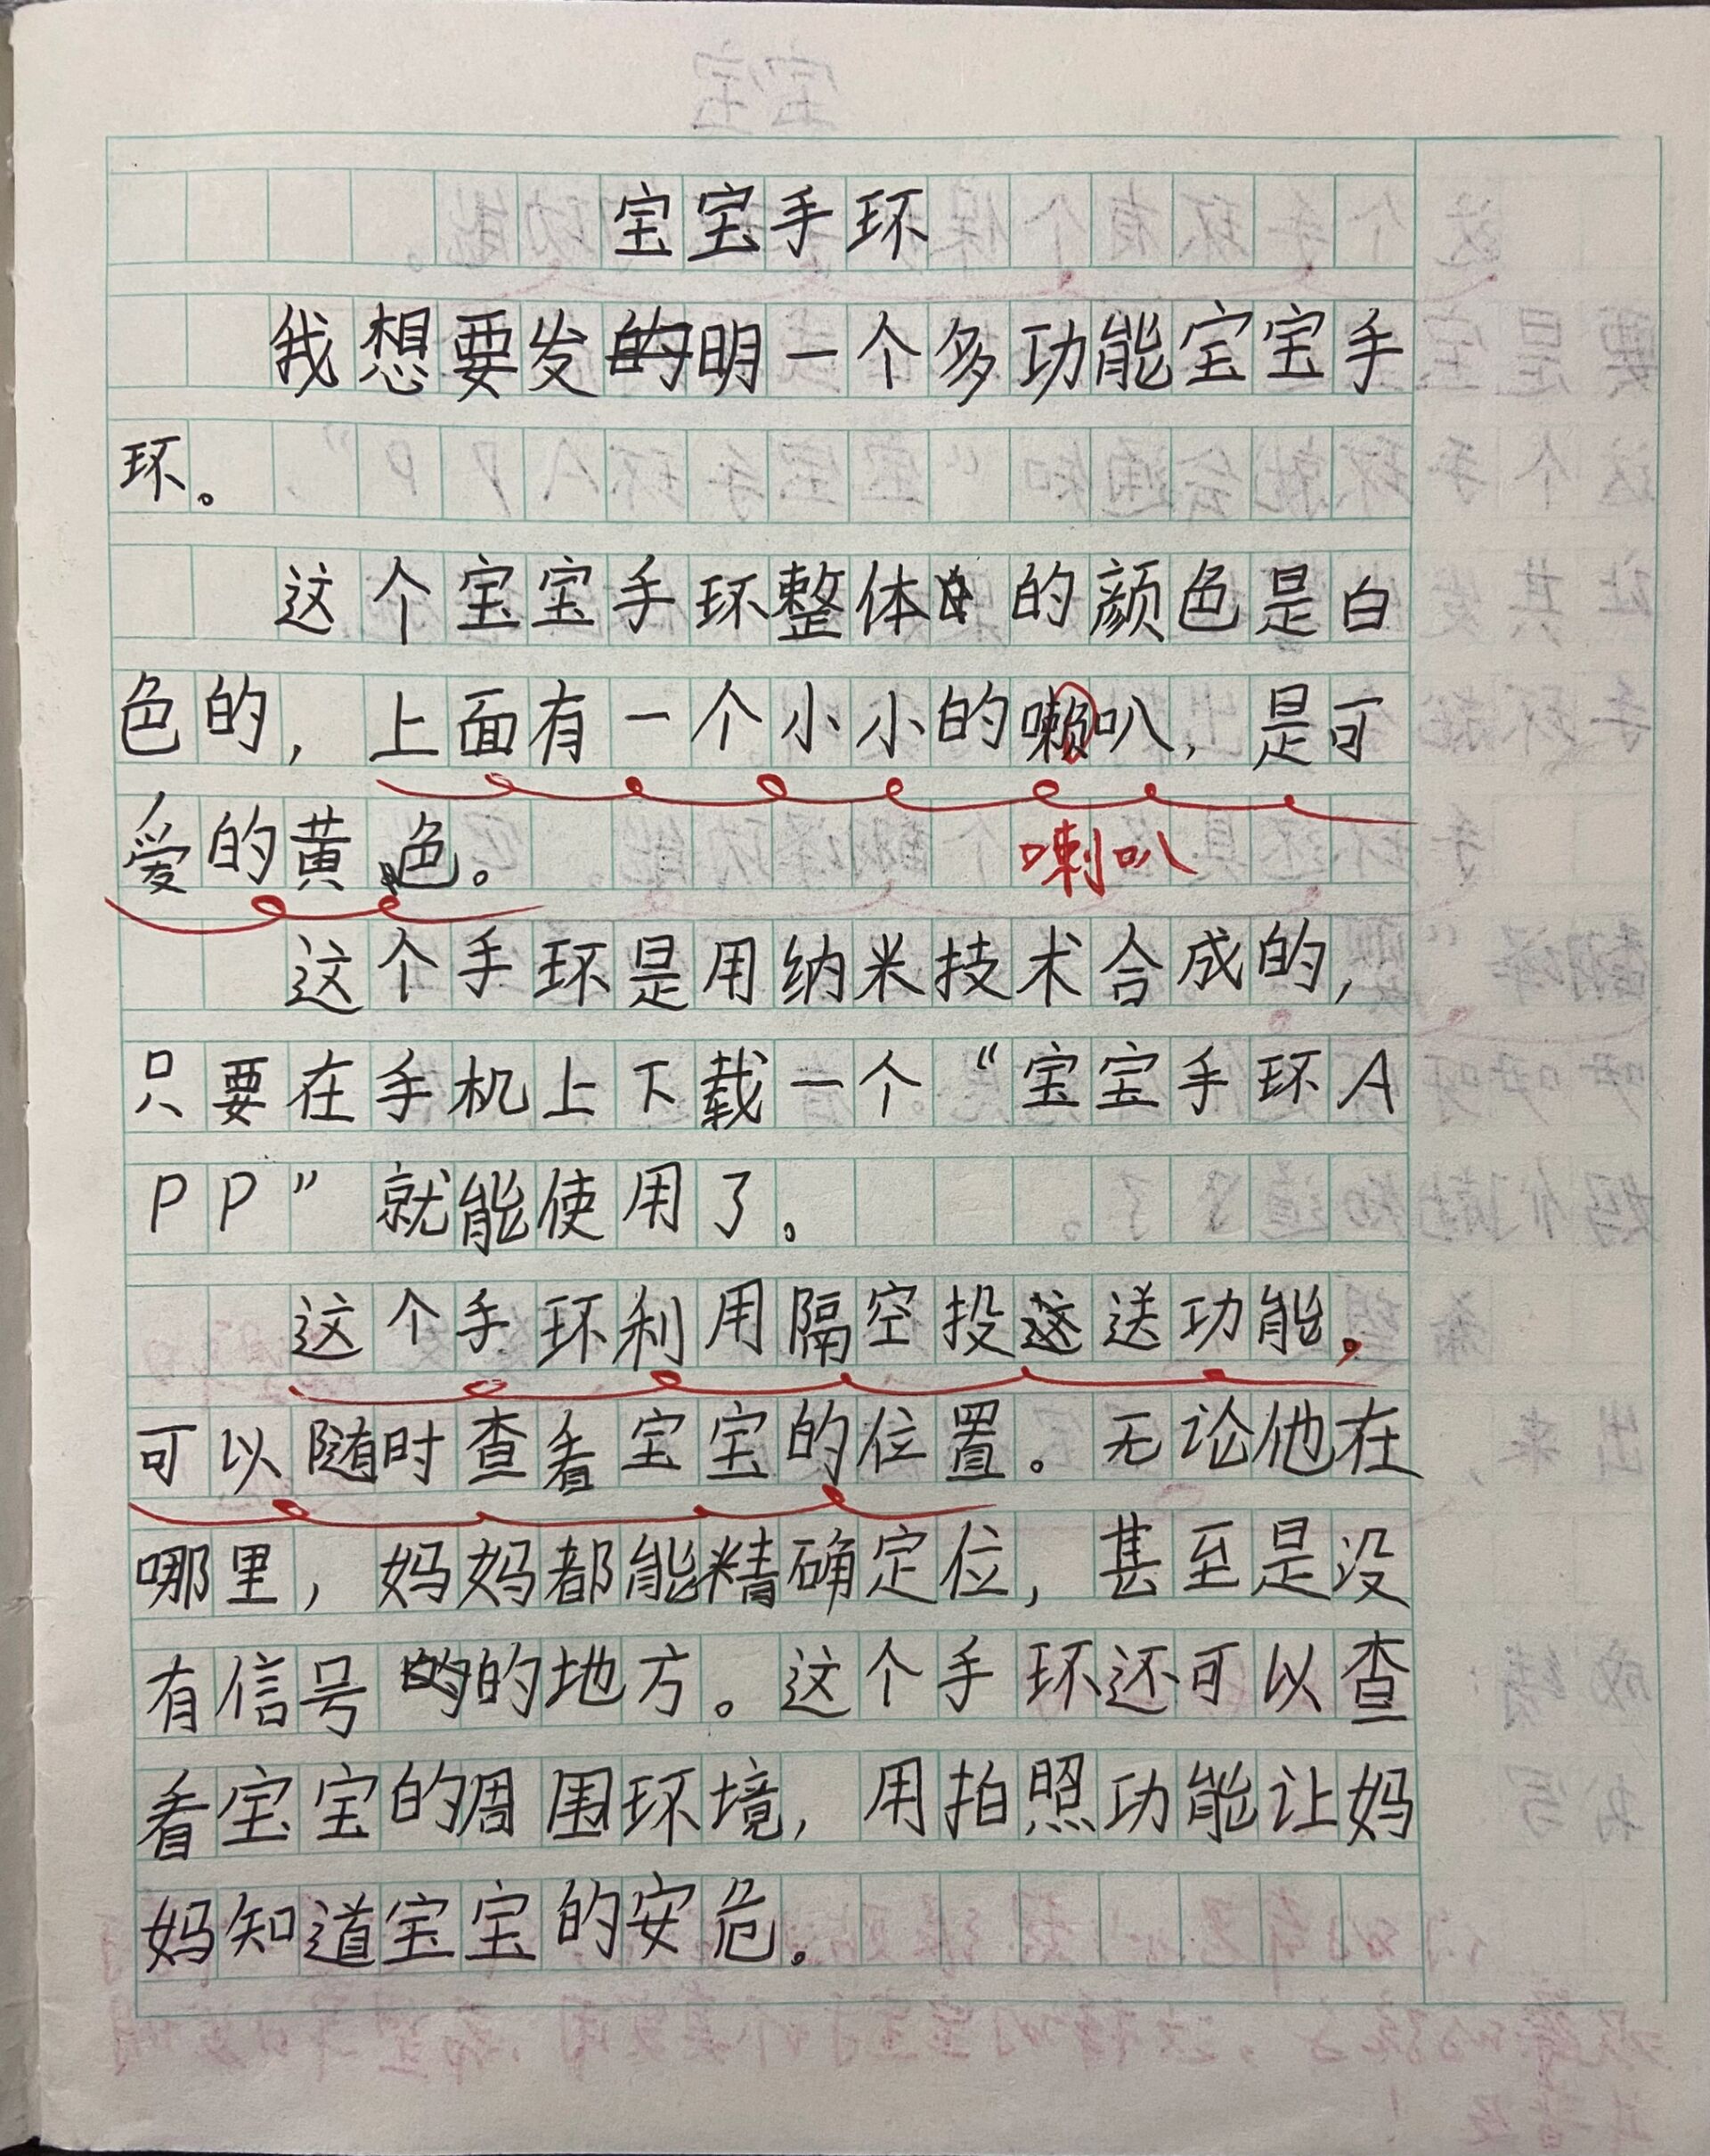 宝宝手环
我想要发明一个多功能宝宝手
环。
这个宝宝手环整体的颜色是白
色的，上面有一个小小的喇叭，是可
爱的黄色。
喇叭
这个手环是用纳米技术合成的，
只要在手机上下载一个“宝宝手环A
PP”就能使用了。
这个手环利用隔空投送功能，
可以随时查看宝宝的位置。无论他在
哪里，妈妈都能精确定位，甚至是没
有信号的地方。这个手环还可以查
看宝宝的周围环境，用拍照功能让妈
妈知道宝宝的安危。